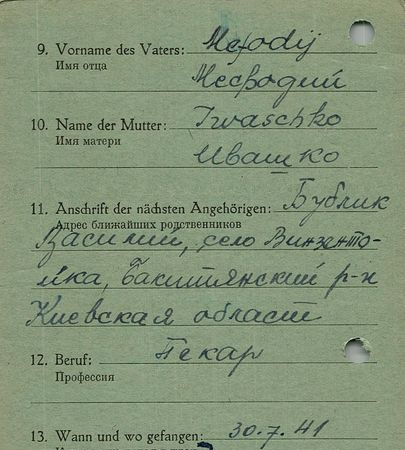 9. Vorname des Vaters: Mefodij
Имя отца
Мефодий
10. Name der Mutter: Iwaschko
Имя матери
Ивашко
11. Anschrift der nächsten Angehörigen: Бублик
Адрес ближайших родственников
Василий, село Винзенто-
вка, Бакштянский р-н
Киевская област
12. Beruf: Пекар
Профессия
13. Wann und wo gefangen: 30.7.41